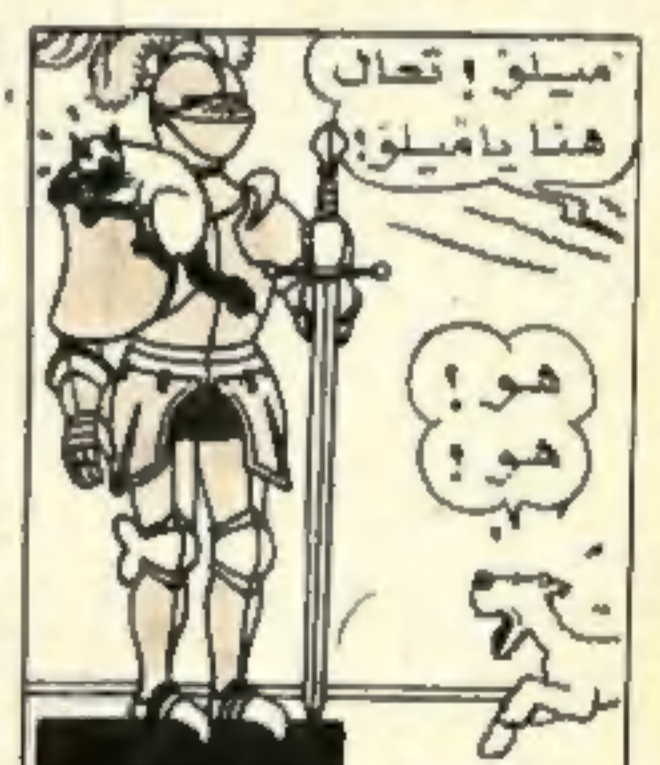 ميلو ! تعال
هنا ياميلو !
هو !
هو !